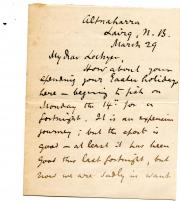 Altnaharra
Lairg, N.B.
March 29
My dear Lockyer,
How about your
spending your Easter holiday
here – beginning to fish on
Monday the 14th for a
fortnight. It is an expensive
journey; but the sport is
good – at least it has been
good this last fortnight, but
now we are sadly in want